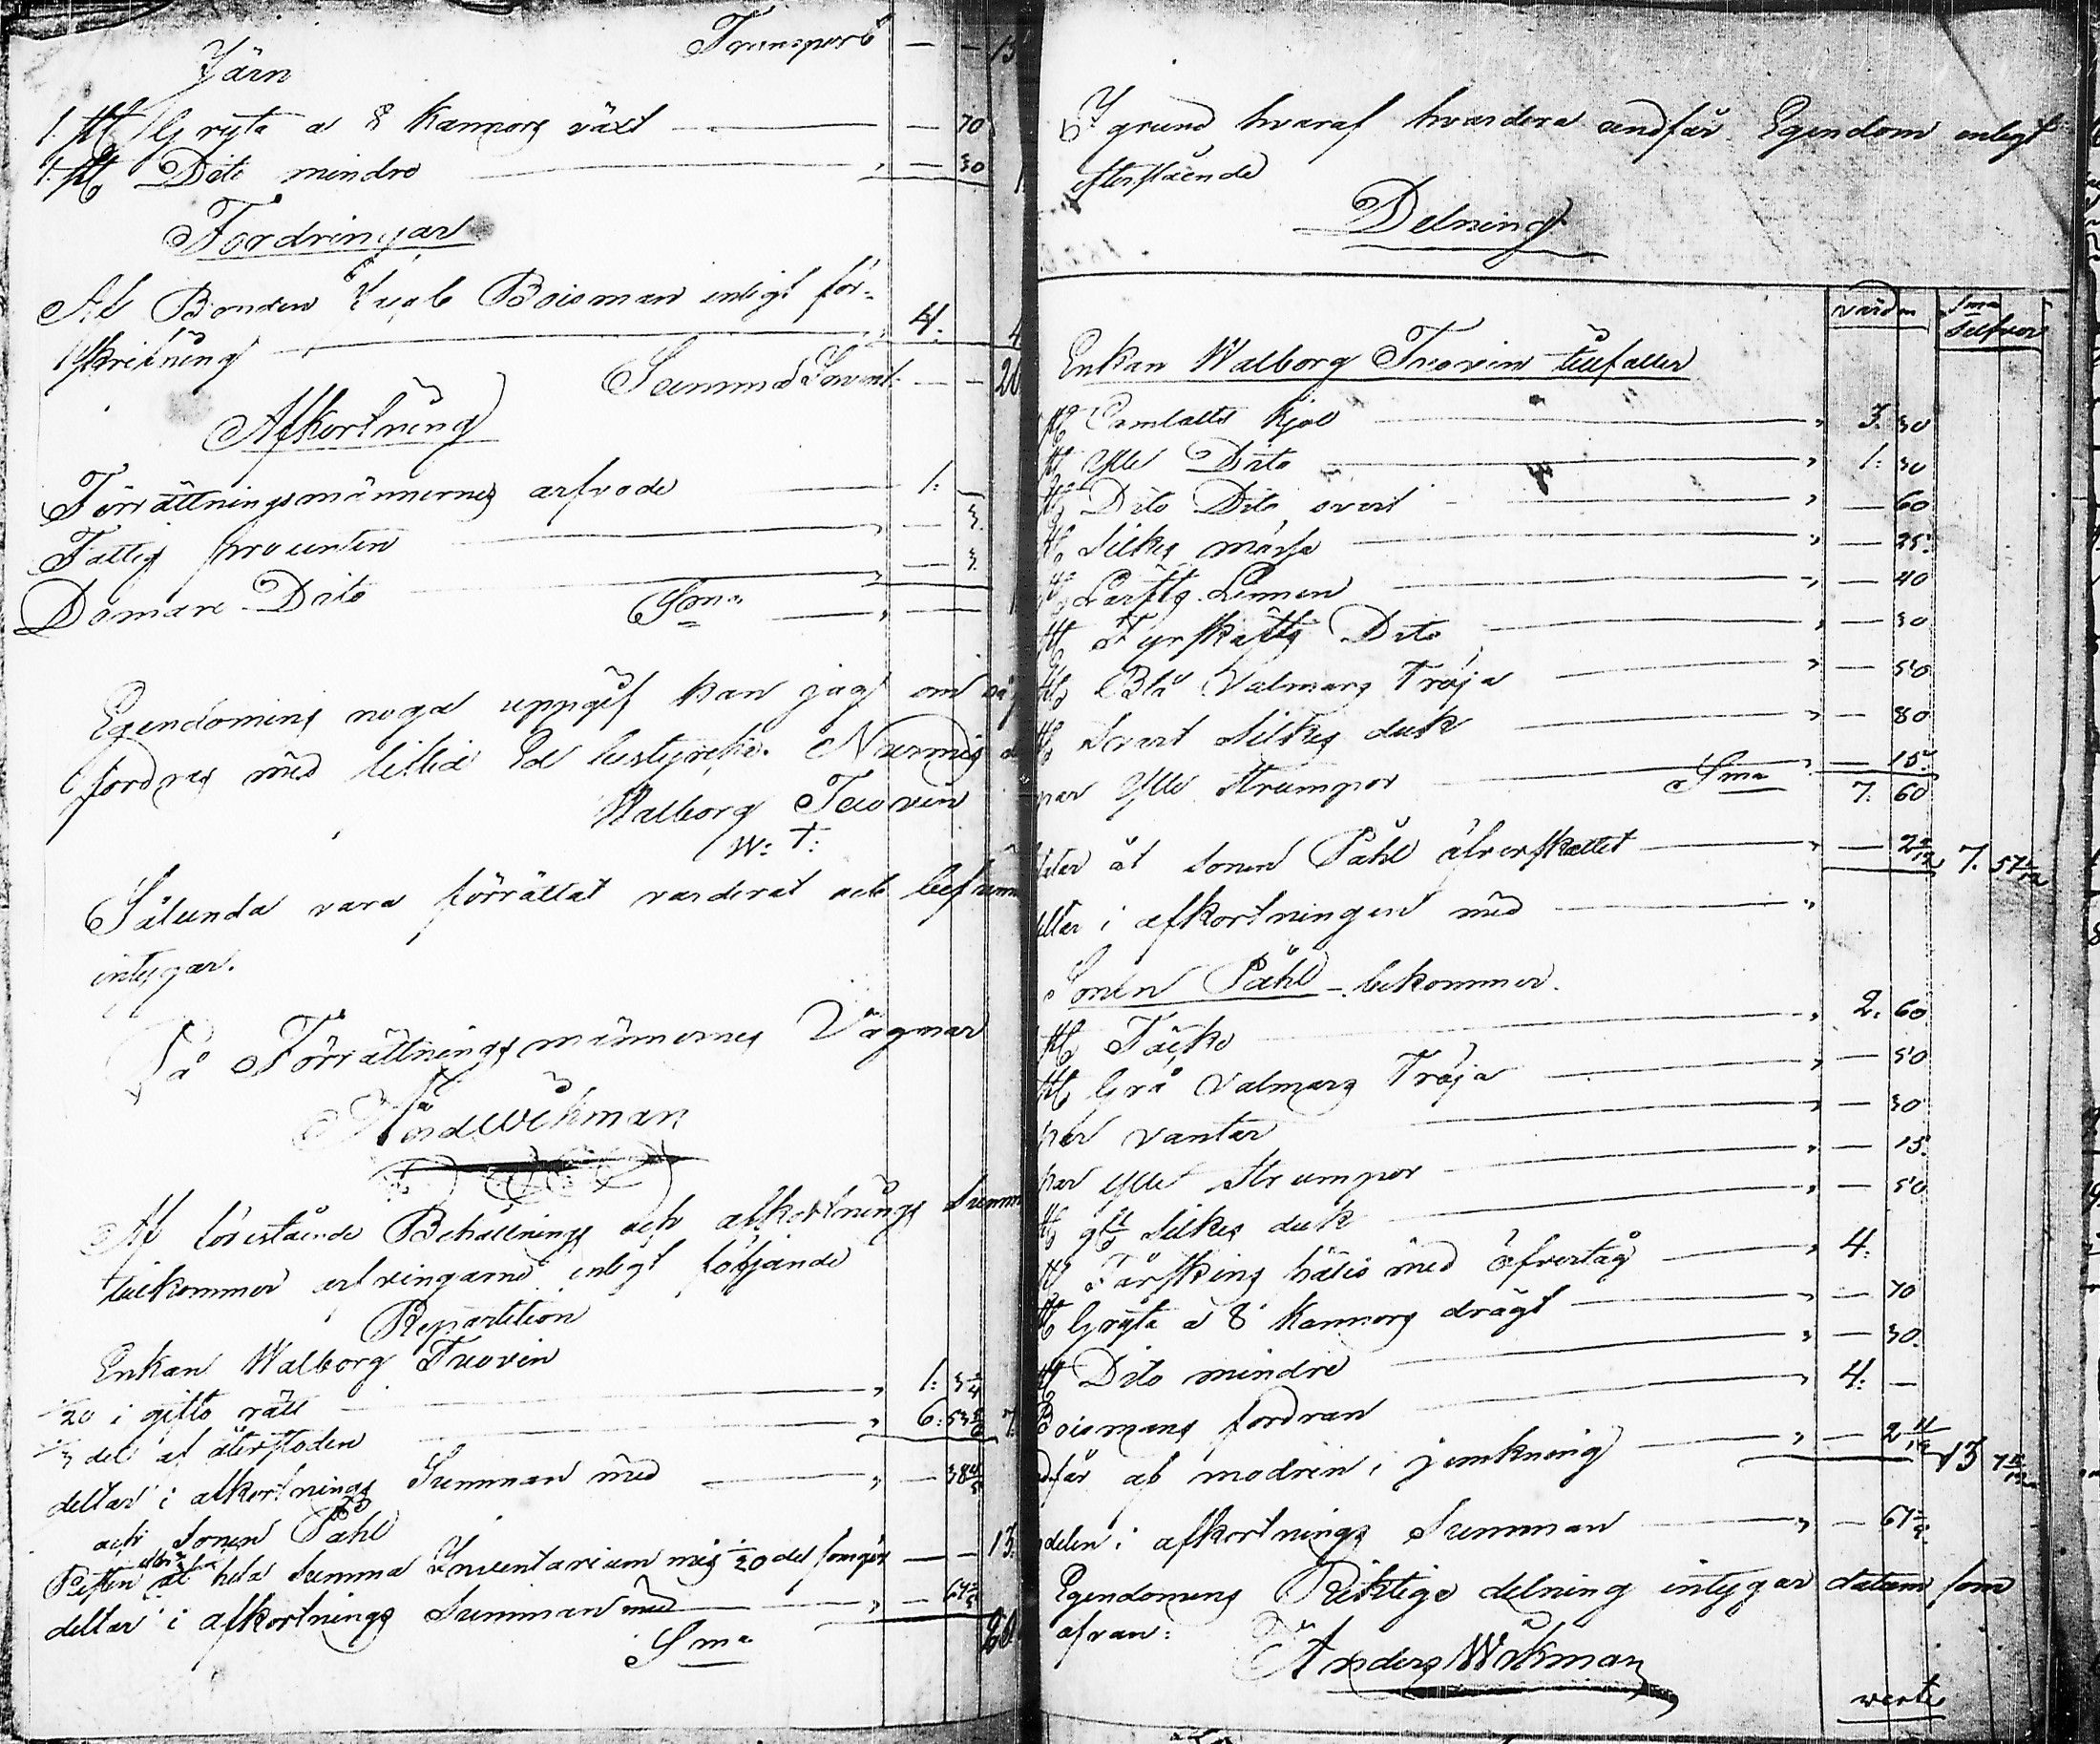 Transport — — 15
Järn
1. st Gryta a 8 Kannors växt — — 70
1. st Dito mindre — — 30 1.
Fordringar
Af Bonden Boisman enligt för-
skrifning — 4. 4
Summa Invent: — — 20
Afkortning
Förrättningsmännernes arfvode — 1: —
Fattig procenten — — 3.
Domare Dito — — 3.
Sma — —
Egendomens noga uppgift kan jag om så
fordras med liflig Ed bestyrka. Nurmis
Walborg Tuovin
W: T:
Sålunda vara förrättat värderat och
intygar.
På Förrättningsmännernes Vägnar
And Wikman
Af förestående Behållnings och afkortnings Summ
tillkommer arfvingarne enligt följande
Repartition
Enkan Walborg Tuovin
1/20 i gifto rätt — 1: 3/4
1/3 del af återstoden — 6: 53 7.
deltar i afkortnings Summan med — — 38
och Sonen Påhl
Resten af hela Summa Inventarium 1/20 del — — 13.
deltar i afkortnings Summan med — — 67
Sma 20
I grund hvaraf hvardera undfår Egendom enligt
efterstående
Delning
värden Sma
Silfver
Enkan Walborg Tuovin tillfaller
st Camlatts Kjol — 3. 30
st Ylle Dito — 1: 30
st Dito Dito svart — — 60
st Silkes mössa — — 25.
st Lärfts Linnen — — 40
st Fyrskafts Dito — — 30
st Blå Valmars Tröja — — 50
st Svart Silkes duk — — 80
par Ylle Strumpor — — 15.
Sma 7. 60
åt Sonen Påhl öfverskottet — — 2 7. 57
deltar i afkortningen med —
Sonen Påhl bekommer.
st Täcke — 2. 60
st Grå Valmars Tröja — — 50
par vantar — — 30
par Ylle Strumpor — — 15.
st Silkes duk — — 50
st Fårskins hälio med öfvertåg — 4.
st Gryta a 8 Kannors drägt — — 70
st Dito mindre — — 30.
Boismans fordran — 4: —
undfår af modren i jemkning — — 2 11/12 13
delen i afkortnings Summan — — 67
Egendomens Riktiga delning intygar datum som
ofvan:
Anders Wikman
verte